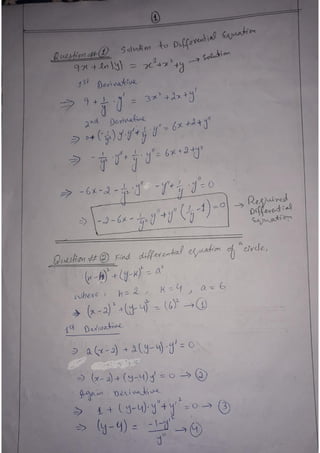 ①
Question # ① Solution to Differential Equation
9x + ln(y) = x³+x²+y → Solution
1st Derivative
⇒ 9 + 1/y · y' = 3x² + 2x + y'
2nd Derivative
⇒ 0 + (-1/y²) y'·y' + 1/y · y'' = 6x + 2 + y''
⇒ -1/y² · y' + 1/y · y'' = 6x + 2 + y''
⇒ -6x - 2 - 1/y² · y' - y'' + 1/y · y'' = 0
⇒ -2 - 6x - 1/y² · y' + y'' (1/y - 1) = 0 → Required Differential Equation
Question # ② Find differential equation of "circle,
(x-h)² + (y-k)² = a²
where, h = 2, k = 4, a = 6
⇒ (x-2)² + (y-4)² = (6)² → ①
1st Derivative
⇒ 2(x-2) + 2(y-4)·y' = 0
⇒ (x-2) + (y-4) y' = 0 → ②
Again Derivative
⇒ 1 + (y-4)·y'' + y'² = 0 → ③
⇒ (y-4) = -1-y'²/y'' → ④